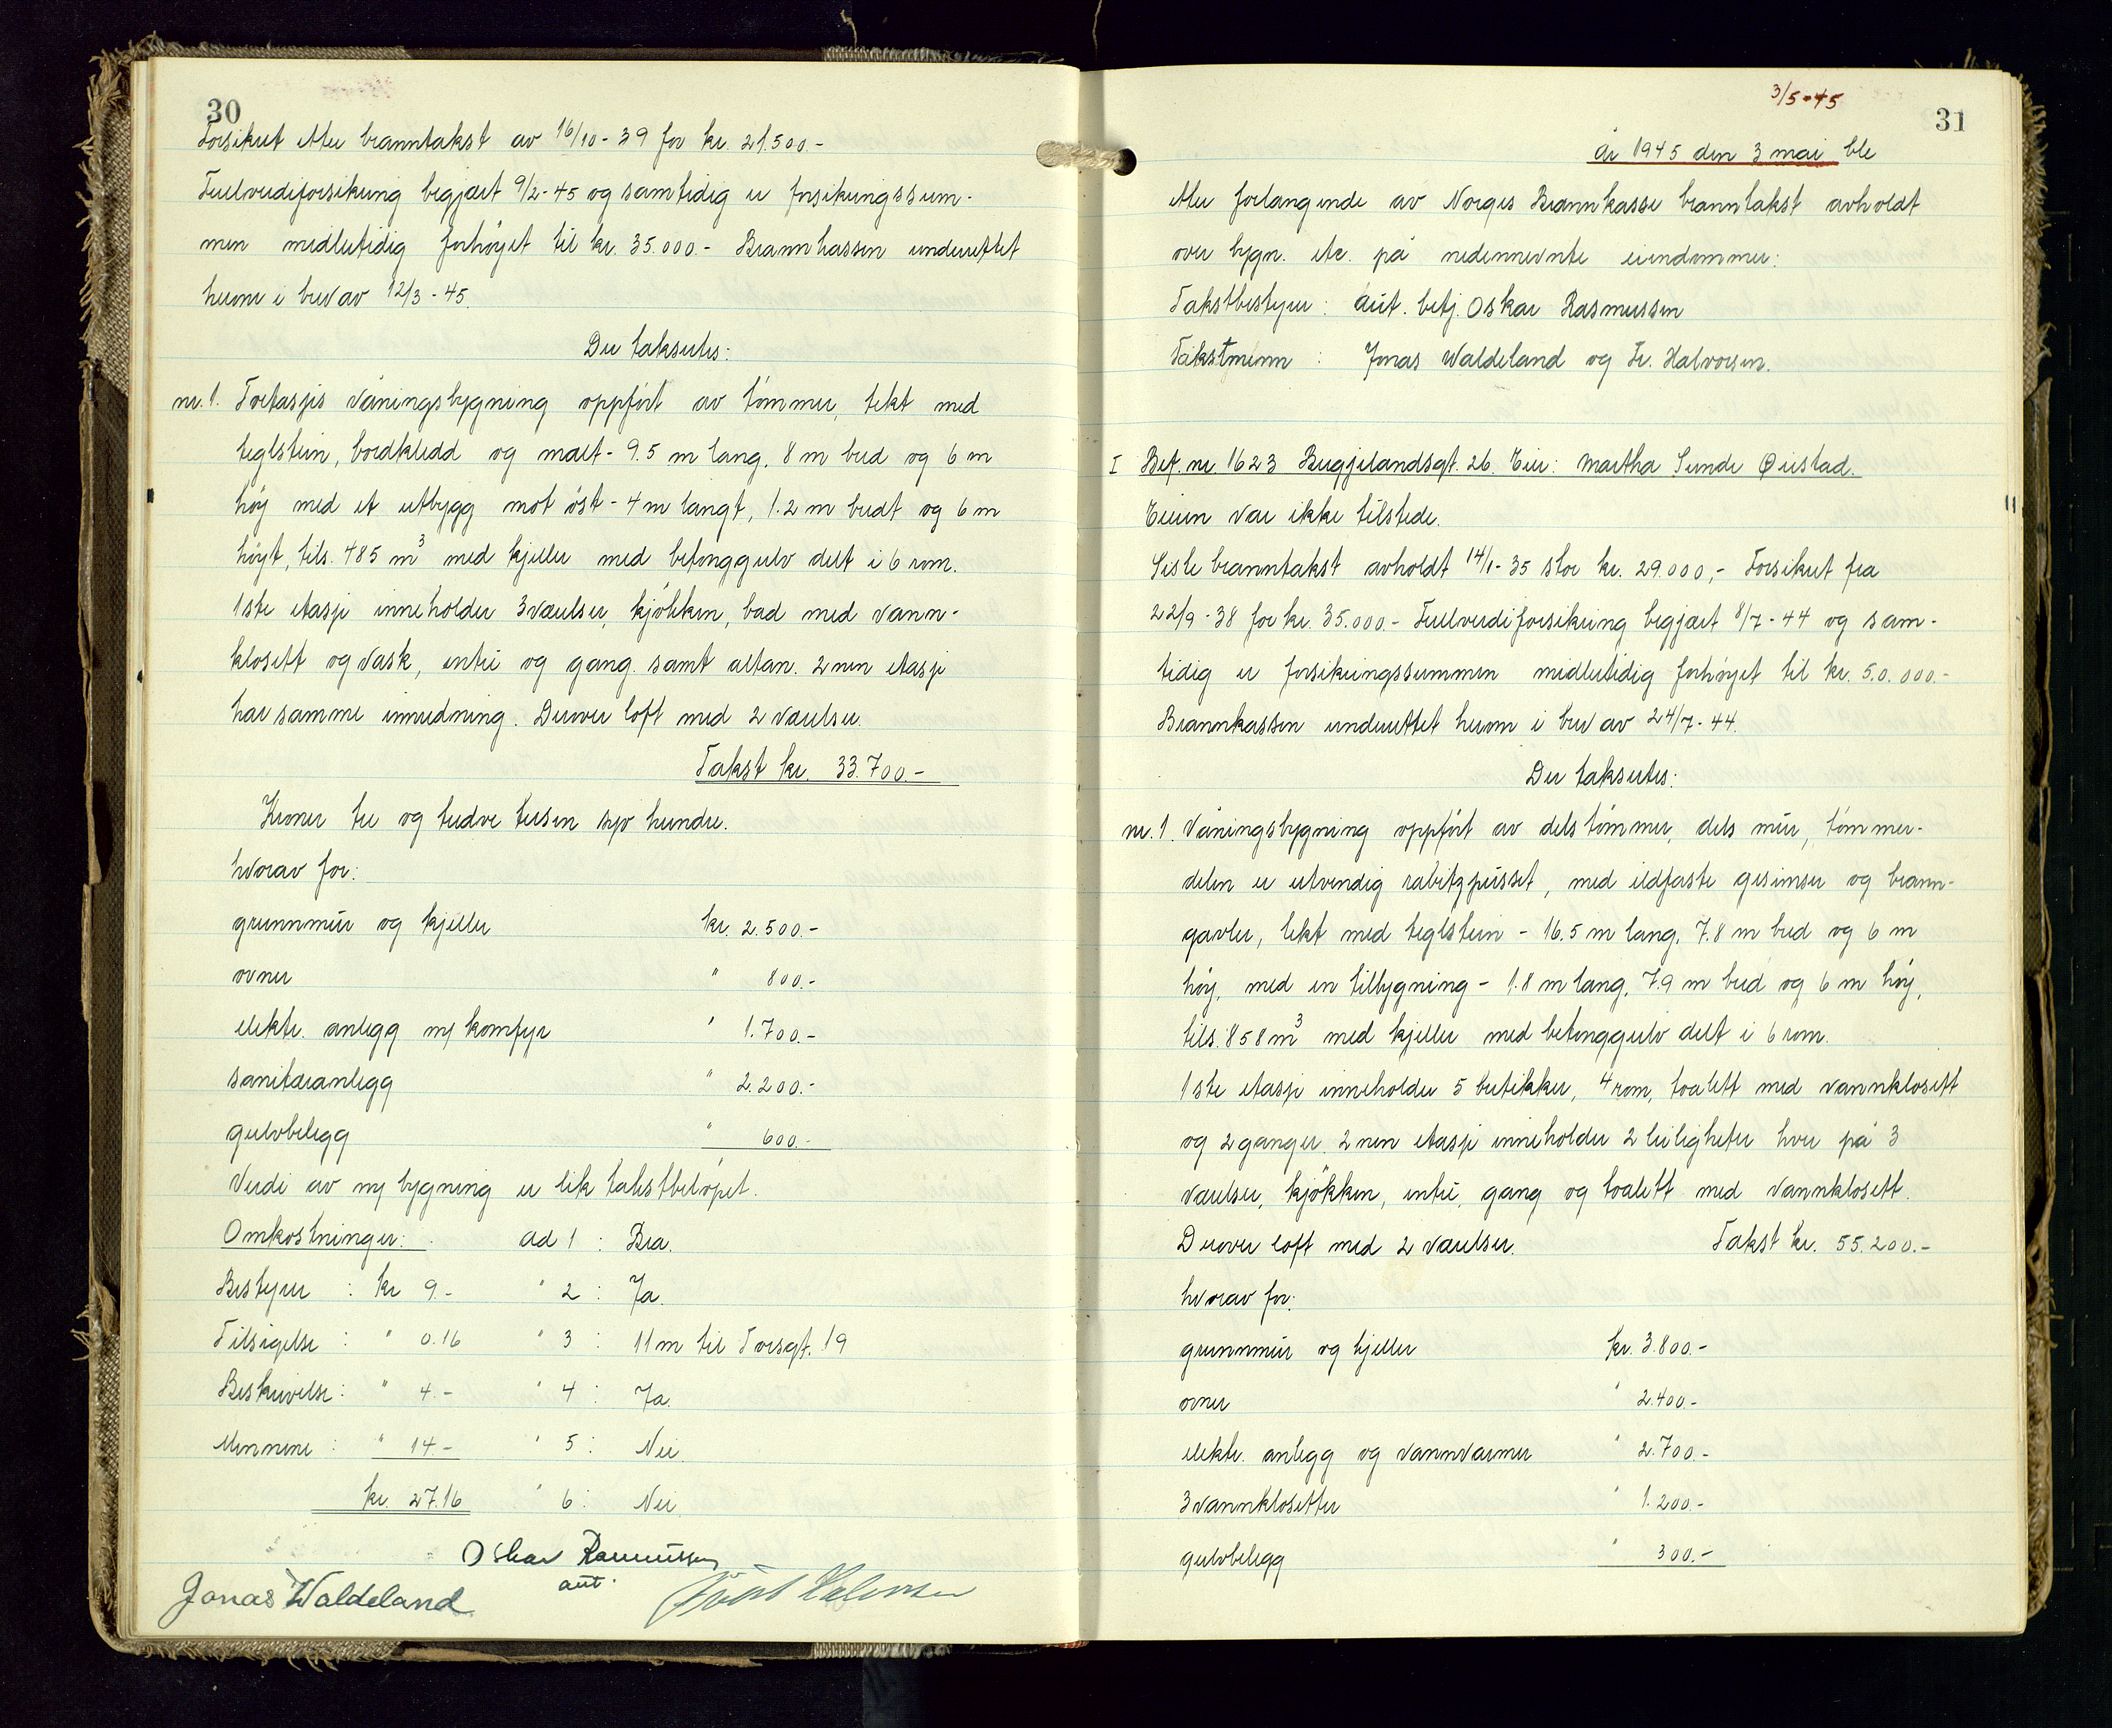 30
Forsikret etter branntakst av 16/10-39 for kr. 21.500.-
Fullverdiforsikring begjært 9/2-45 og samtidig er forsikringssum-
men midlertidig forhöyet til kr. 35.000.- Brannkassen underrettet
herom i brev av 12/3-45.
Der takseres:
nr. 1. Toetasjes våningsbygning oppfört av tömmer, tekt med
teglstein, bordkledd og malt - 9.5 m lang, 8 m bred og 6 m
höy med et utbygg mot öst - 4 m langt, 1.2 m bredt og 6 m
höyt, tils. 485 m³ med kjeller med betonggulv delt i 6 rom.
1ste etasje inneholder 3 værelser, kjökken, bad med vann-
klosett og vask, entré og gang samt altan. 2nen etasje
har samme innredning. Derover loft med 2 værelser.
Takst kr. 33.700.-
Kroner tre og tredve tusen syv hundre.
hvorav for:
grunnmur og kjeller kr. 2.500.-
ovner " 800.-
elektr. anlegg m/ komfyr " 1.700.-
sanitæranlegg " 2.200.-
gulvbelegg " 600.-
Verdi av ny bygning er lik takstbelöpet.
Omkostninger: ad 1 : Bra.
Bestyrer : kr 9.- " 2 : Ja.
Tilsigelse : " 0.16 " 3 : 11 m til Torsgt. 19
Beskrivelse : " 4.- " 4 : Ja.
Mennene : " 14.- " 5 : Nei.
kr. 27.16 " 6 : Nei.
Oskar Rasmussen
aut.
Jonas Waldeland Halvorsen
3/5-45
31
År 1945 den 3 mai ble
etter forlangende av Norges Brannkasse branntakst avholdt
over bygn. etc. på nedennevnte eiendommer:
Takstbestyrer : aut. betj. Oskar Rasmussen
Takstmenn : Jonas Waldeland og Fr. Halvorsen.
I Br.f. nr. 1623 Bergjelandsgt. 26. Eier: Martha Sunde Ørestad.
Eieren var ikke tilstede.
Siste branntakst avholdt 14/1-35 stor kr. 29.000,- Forsikret fra
22/9-38 for kr. 35.000.- Fullverdiforsikring begjært 8/7-44 og sam-
tidig er forsikringssummen midlertidig forhöyet til kr. 50.000.-
Brannkassen underrettet herom i brev av 24/7-44.
Der takseres:
nr. 1. Våningsbygning oppfört av dels tömmer, dels mur, tömmer-
delen er utvendig rabitzpusset, med ildfaste gesimser og brann-
gavler, tekt med teglstein - 16.5 m lang, 7.8 m bred og 6 m
höy, med en tilbygning - 1.8 m lang, 7.9 m bred og 6 m höy,
tils. 858 m³ med kjeller med betonggulv delt i 6 rom.
1ste etasje inneholder 5 butikker, 4 rom, toalett med vannklosett
og 2 ganger. 2nen etasje inneholder 2 leiligheter hver på 3
værelser, kjökken, entré, gang og toalett med vannklosett.
Derover loft med 2 værelser. Takst kr. 55.200.-
hvorav for:
grunnmur og kjeller kr. 3.800.-
ovner " 2.400.-
elektr. anlegg og vannvarmer " 2.700.-
3 vannklosetter " 1.200.-
gulvbelegg " 300.-